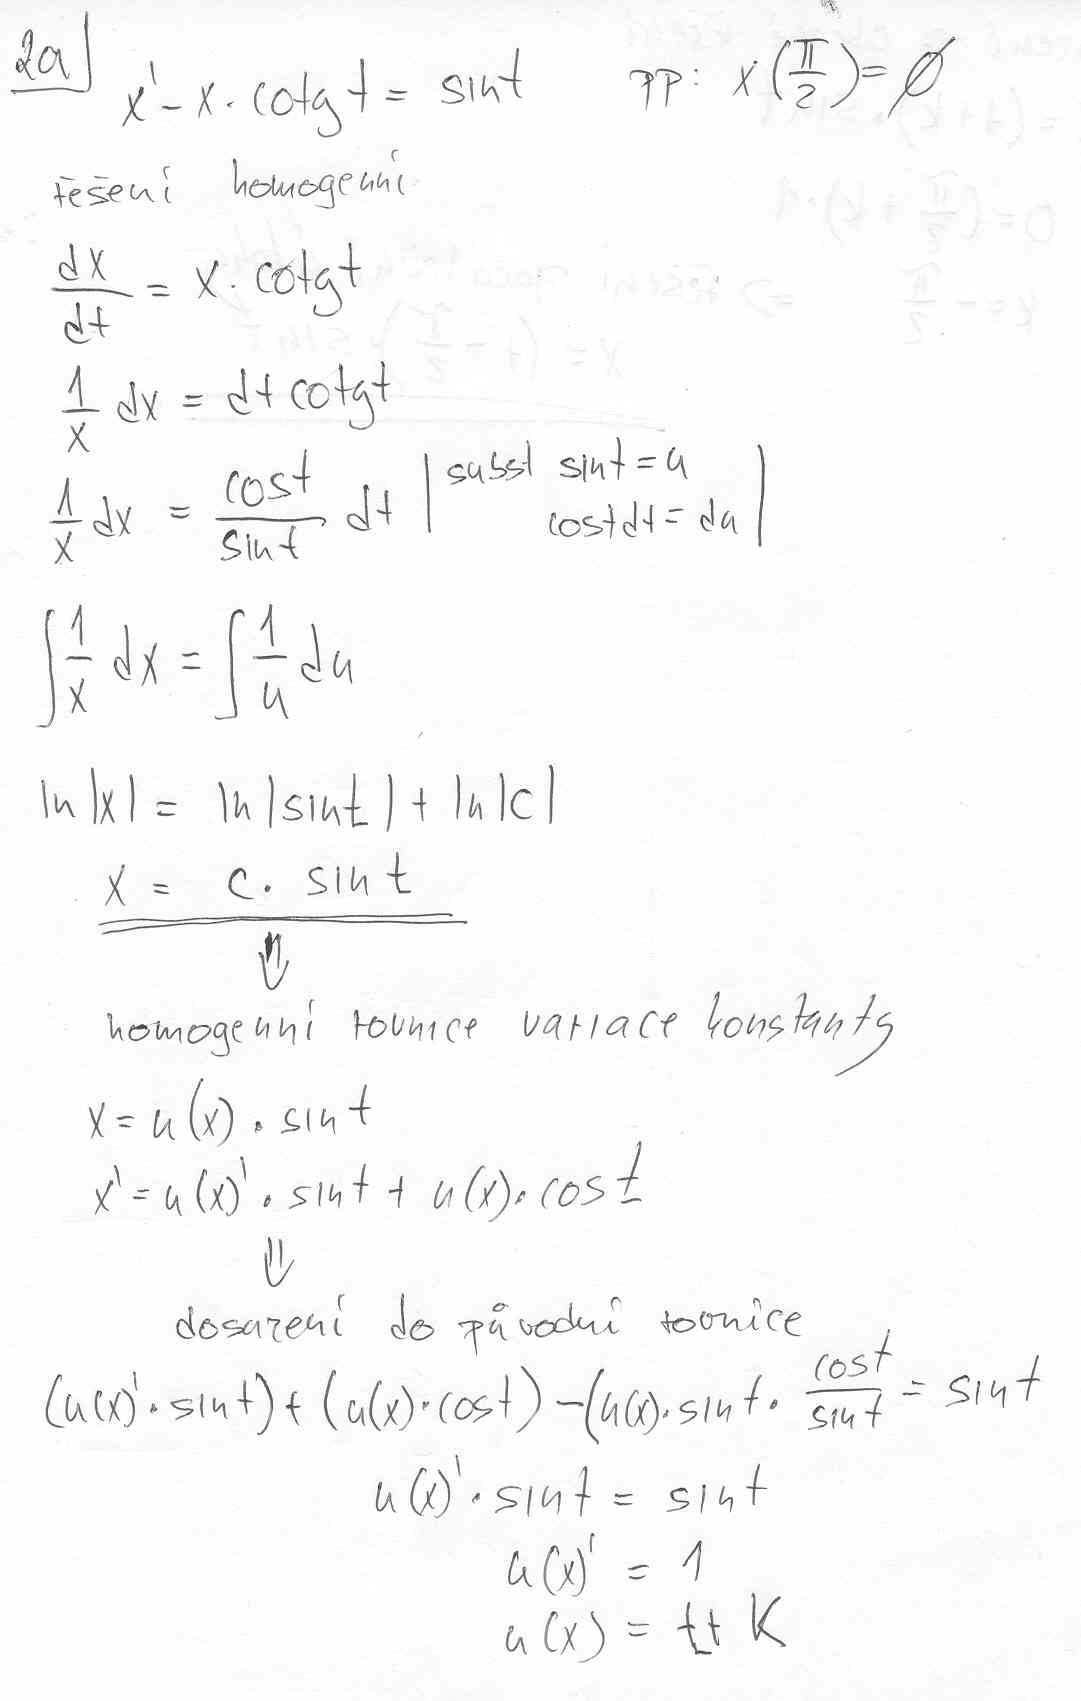 2a) x' - x · cotg t = sin t    pp: x(π/2) = ∅
řešení homogenní
dx/dt = x · cotg t
1/x dx = dt cotg t
1/x dx = cos t/sin t dt | subst sin t = u
cos t dt = du |
∫ 1/x dx = ∫ 1/u du
ln|x| = ln|sin t| + ln|c|
x = c · sin t
⇓
homogenní rovnice variace konstanty
x = u(x) · sin t
x' = u(x)' · sin t + u(x) · cos t
⇓
dosazení do původní rovnice
(u(x)' · sin t) + (u(x) · cos t) - (u(x) · sin t · cos t/sin t = sin t
u(x)' · sin t = sin t
u(x)' = 1
u(x) = t + K